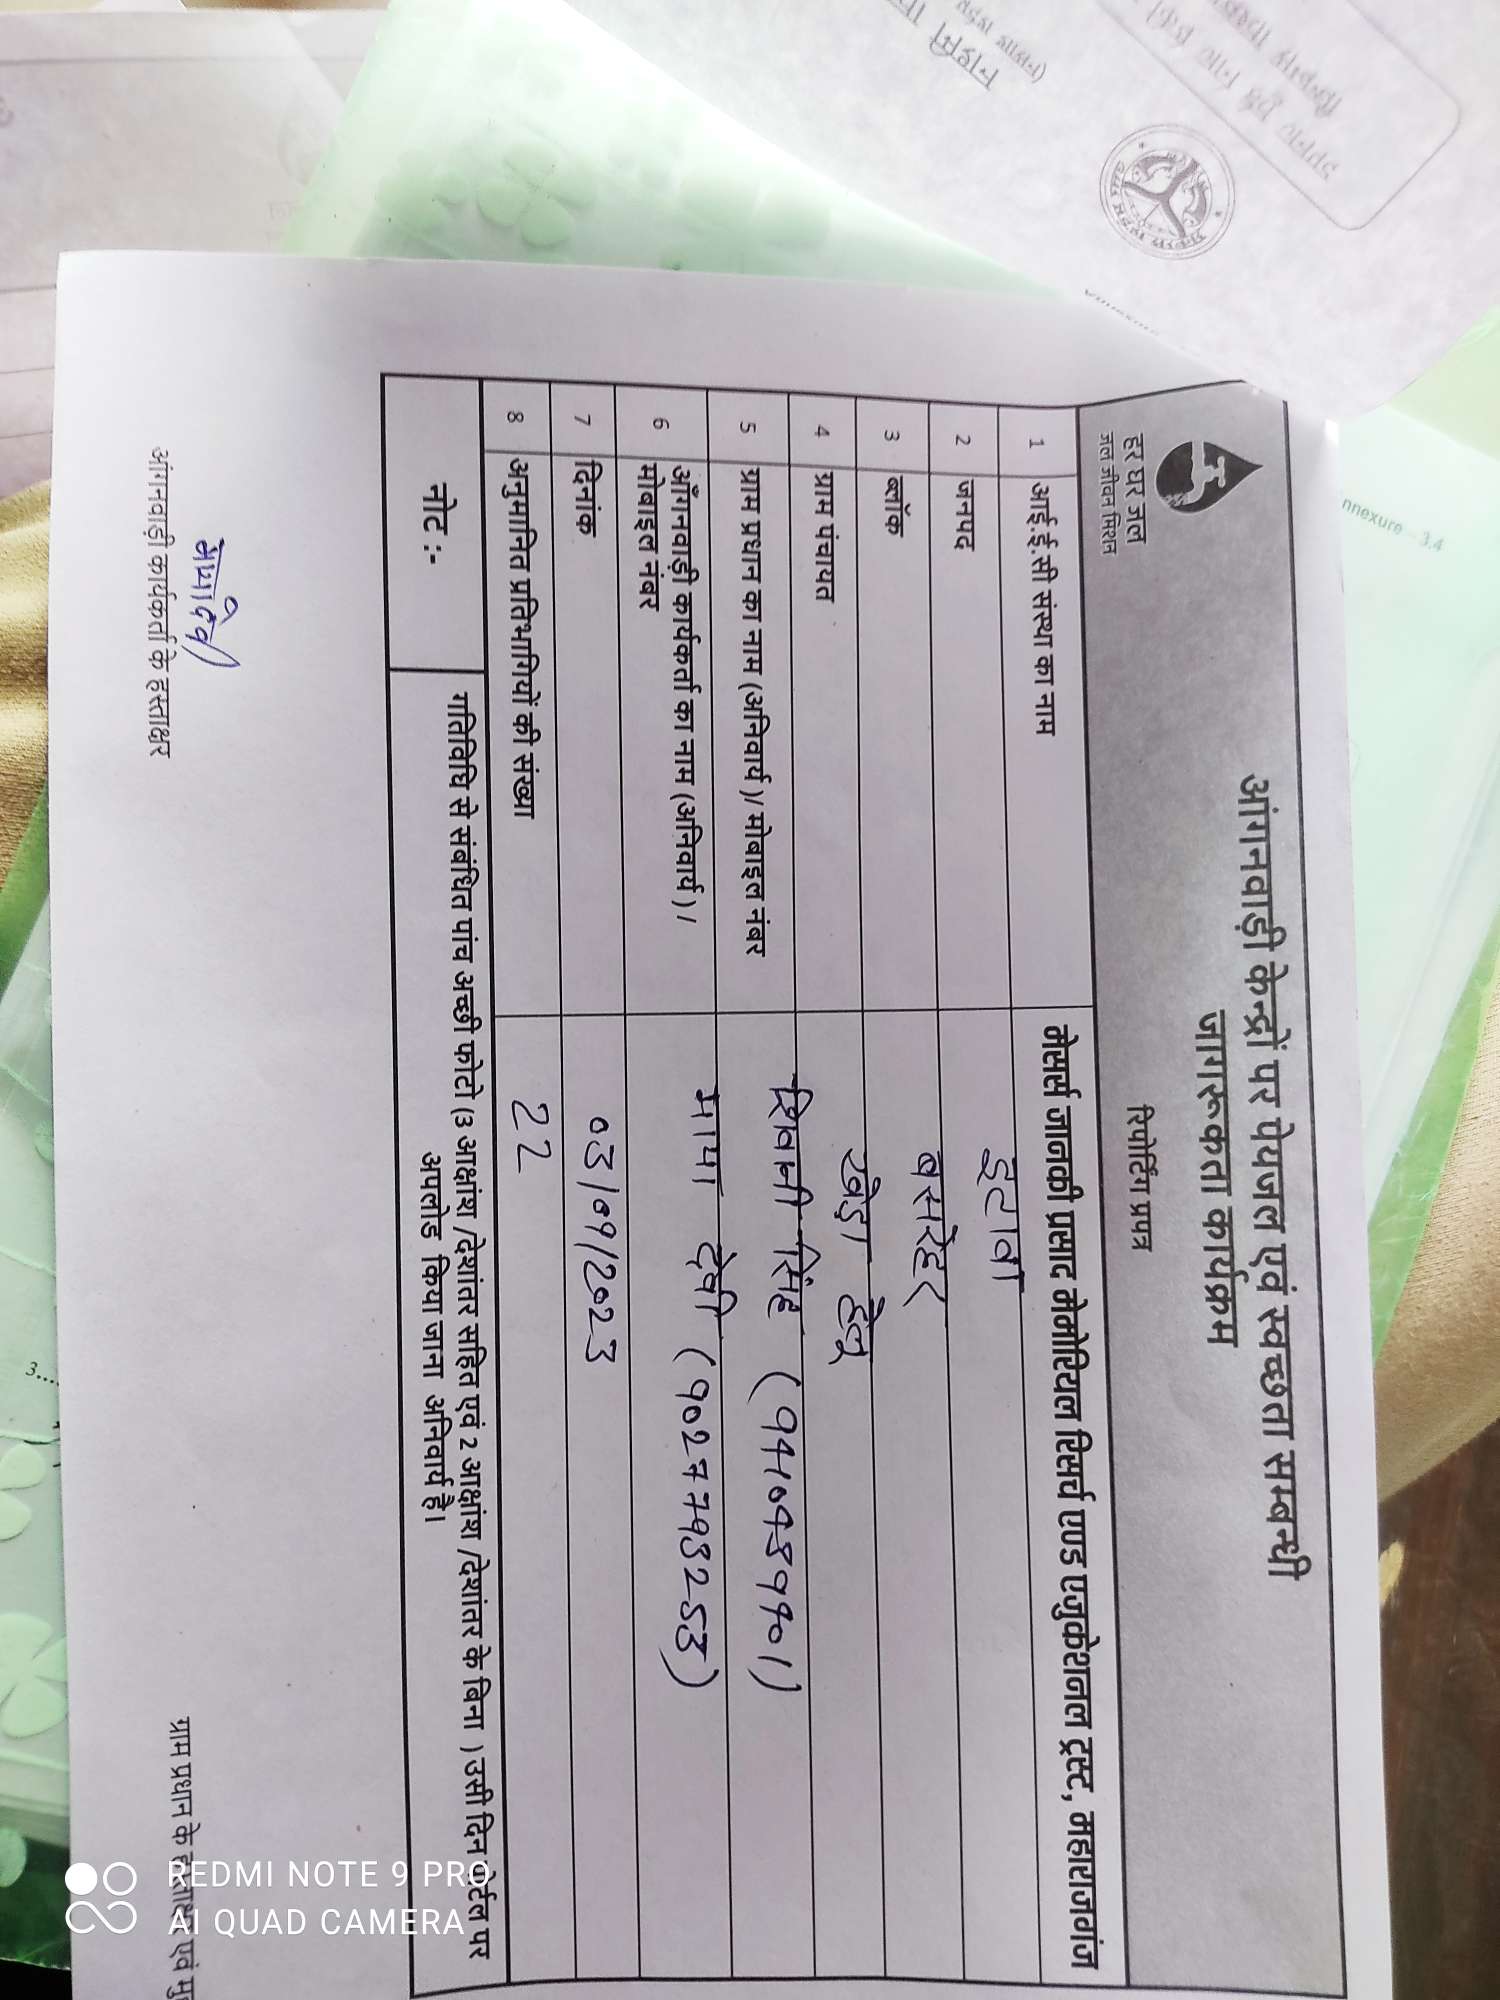 nnexure – 3.4
आंगनवाड़ी केन्द्रों पर पेयजल एवं स्वच्छता सम्बन्धी
जागरूकता कार्यक्रम
रिपोर्टिंग प्रपत्र
हर घर जल
जल जीवन मिशन
1 आई.ई.सी संस्था का नाम मेसर्स जानकी प्रसाद मेमोरियल रिसर्च एण्ड एजुकेशनल ट्रस्ट, महाराजगंज
2 जनपद इटावा
3 ब्लॉक बसरेहर
4 ग्राम पंचायत खेड़ा हेलू
5 ग्राम प्रधान का नाम (अनिवार्य)/ मोबाइल नंबर शिवानी सिंह
6 आँगनवाड़ी कार्यकर्ता का नाम (अनिवार्य)/ माया देवी
मोबाइल नंबर
7 दिनांक 03/09/2023
8 अनुमानित प्रतिभागियों की संख्या 22
नोट :- गतिविधि से संबंधित पांच अच्छी फोटो (3 आक्षांश /देशांतर सहित एवं 2 आक्षांश /देशांतर के बिना ) उसी दिन पोर्टल पर
अपलोड किया जाना अनिवार्य है।
मायादेवी
आंगनवाड़ी कार्यकर्ता के हस्ताक्षर
ग्राम प्रधान के हस्ताक्षर एवं
3....
REDMI NOTE 9 PRO
AI QUAD CAMERA